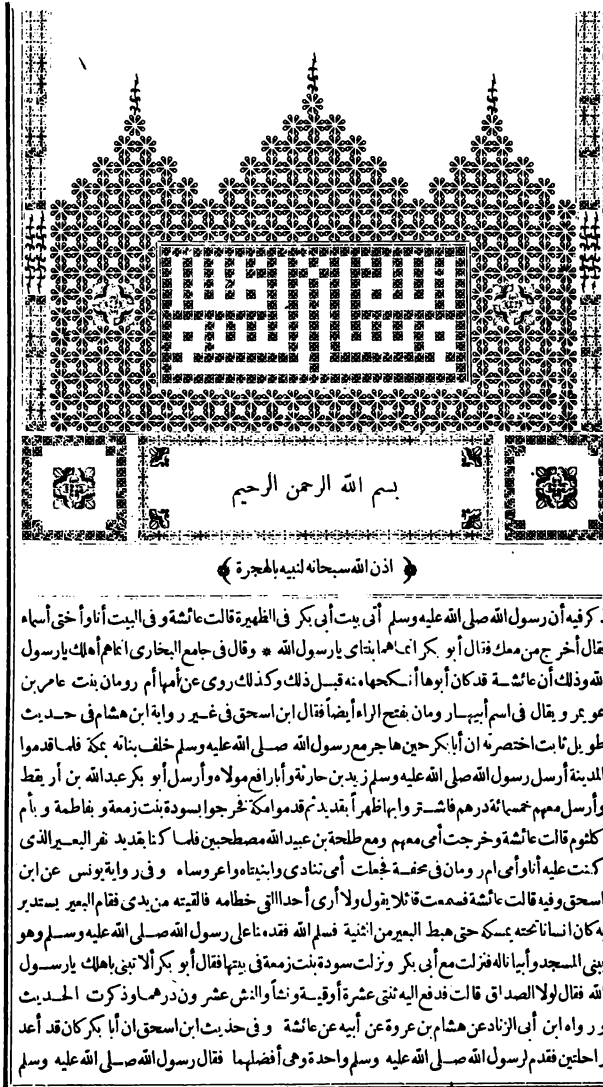 بسم الله الرحمن الرحيم
﴿ اذن الله سبحانه لنبيه بالهجرة ﴾
ذكر فيه أن رسول الله صلى الله عليه وسلم أتى بيت أبى بكر فى الظهيرة قالت عائشة وفى البيت أنا وأختى أسماء
فقال أخرج من معك فقال أبو بكر انما هما ابنتاى يا رسول الله * وقال فى جامع البخارى انما هم أهلك يا رسول
الله وذلك أن عائشة قد كان أبوها أنكحها منه قبل ذلك وكذلك روى عن أمها أم رومان بنت عامر بن
عويمر ويقال فى اسم أبيها رومان بفتح الراء أيضاً فقال ابن اسحق فى غير رواية ابن هشام فى حديث
طويل ثابت اختصرته ان أبا بكر حين هاجر مع رسول الله صلى الله عليه وسلم خلف بناته بمكة فلما قدموا
المدينة أرسل رسول الله صلى الله عليه وسلم زيد بن حارثة وأبا رافع مولاه وأرسل أبو بكر عبد الله بن أريقط
وأرسل معهم خمسمائة درهم فاشتروا بها ظهراً بقديد ثم قدموا مكة فخرجوا بسودة بنت زمعة وبفاطمة وبأم
كلثوم قالت عائشة وخرجت أمى معهم ومع طلحة بن عبيد الله مصطحبين فلما كنا بقديد نفر البعير الذى
كنت عليه أنا وأمى ام رومان فى محفة فجعلت أمى تنادى وابنيتاه واعروساه وفى رواية يونس عن ابن
اسحق وفيه قالت عائشة فسمعت قائلا يقول ولا أرى أحدا القى خطامه فالقيته من يدى فقام البعير يستدير
به كان انسانا تحته يمسكه حتى هبط البعير من الثنية فسلم الله فقدمنا على رسول الله صلى الله عليه وسلم وهو
يبنى المسجد وأبياتا له فنزلت مع أبى بكر ونزلت سودة بنت زمعة فى بيتها فقال أبو بكر ألا تبنى باهلك يا رسول
الله فقال لولا الصداق قالت فدفع اليه ثنتى عشرة أوقية ونشاً والنش عشرون درهما وذكرت الحديث
ورواه ابن أبى الزناد عن هشام بن عروة عن أبيه عن عائشة وفى حديث ابن اسحق ان أبا بكر كان قد أعد
راحلتين فقدم لرسول الله صلى الله عليه وسلم واحدة وهى أفضلهما فقال رسول الله صلى الله عليه وسلم